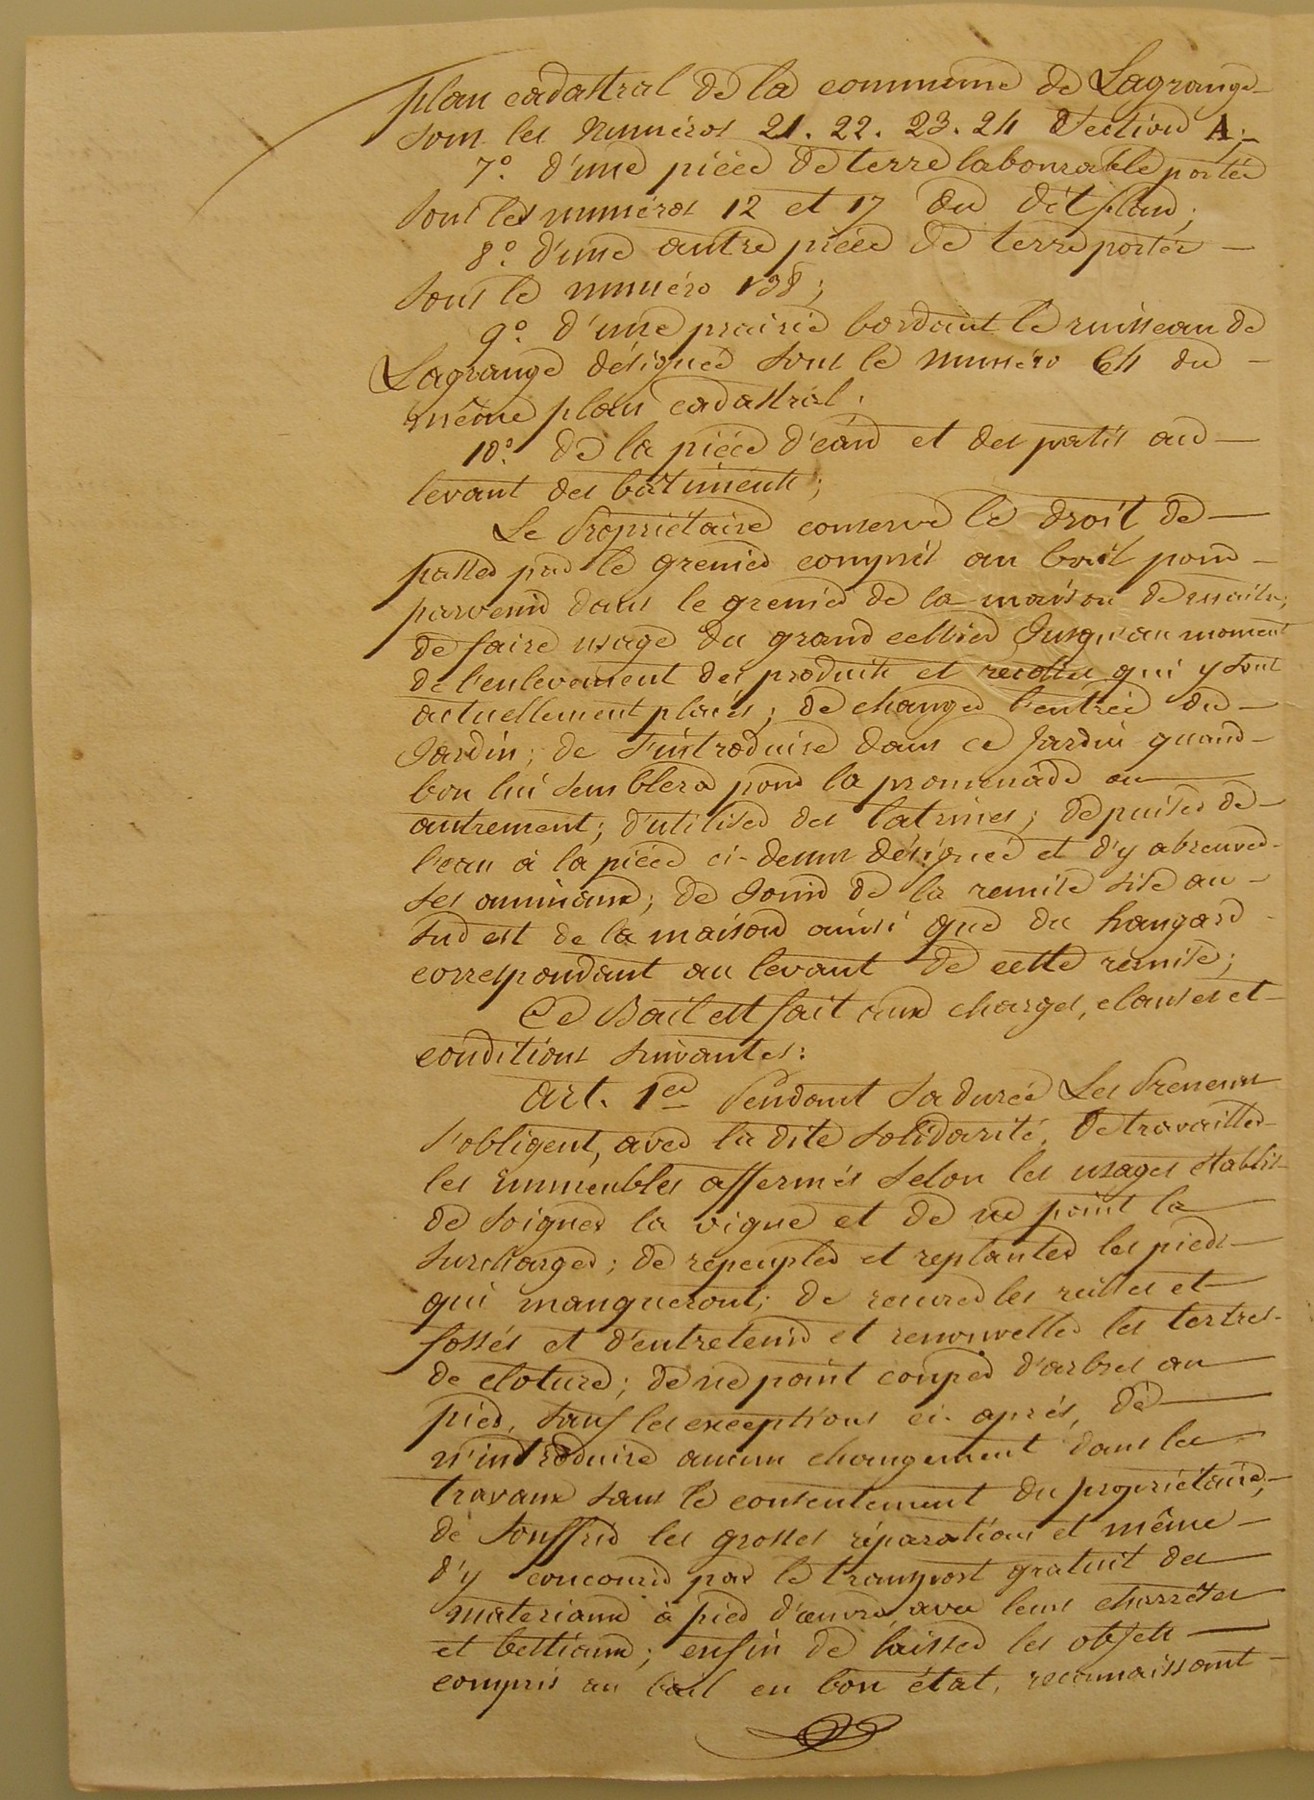 plan cadastral de la commune de Lagrange
sous les Numéros 21. 22. 23. 24 Section A;
7º. d'une pièce de terre labourable portée
sous les numéros 12 et 17 du dit plan;
8º. d'une autre pièce de terre portée
sous le numéro 138;
9º. d'une prairie bordant le ruisseau de
Lagrange désignée sous le numéro 64 du
même plan cadastral.
10º. de la pièce d'eau et des patis au
levant des batiments;
Le Propriétaire conserve le droit de
passer par le grenier compris au bail pour
parvenir dans le grenier de la maison de maitre;
de faire usage du grand cellier Jusqu'au moment
de l'enlevement des produits et recoltes qui y sont
actuellement placés; de changer l'entrée du
Jardin; de s'introduire dans ce Jardin quand
bon lui semblera pour la promenade ou
autrement; d'utiliser des latrines; de puiser de
l'eau à la pièce ci-dessus désignée et d'y abreuver
ses animaux; de Jouir de la remise sise au
sud est de la maison ainsi que du hangard
correspondant au levant de cette remise;
Ce Bail est fait aux charges, clauses et
conditions suivantes:
Art. 1er Pendant sa durée Les Preneurs
s'obligent, avec la dite solidarité, de travailler
les Immeubles affermés selon les usages établis
de soigner la vigne et de ne point la
surcharger; de repeupler et replanter les pieds
qui manqueront; de recurer les rulles et
fossés et d'entretenir et renouveller les tertres
de cloture; de ne point couper d'arbres au
pied, sauf les exceptions ci-après, de
n'introduire aucun changement dans les
travaux sans le consentement du propriétaire;
de souffrir les grosses réparations et même
d'y concourir par le transport gratuit des
materiaux à pied d'œuvre avec leurs charrêtes
et bestiaux; enfin de laisser les objets
compris au bail en bon état, reconnaissant